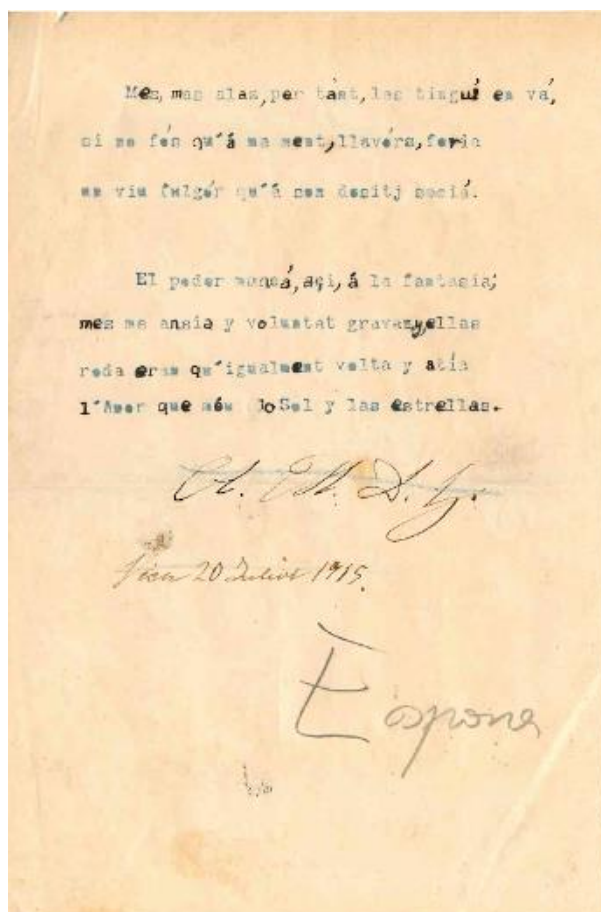 Mes, mas alas, per tant, las tinguí en vá,
si no fós qu'á ma ment, llavórs, feria
un viu fulgór qu'á son desitj sociá.
El poder mancá, açi, á la fantasía;
mes ma ansia y voluntat gravan, yellas
roda eran qu'igualment volta y atía
l'Amor que móu lo Sol y las estrellas.
A. M. D. G.
20 Juliol 1915.
Espona